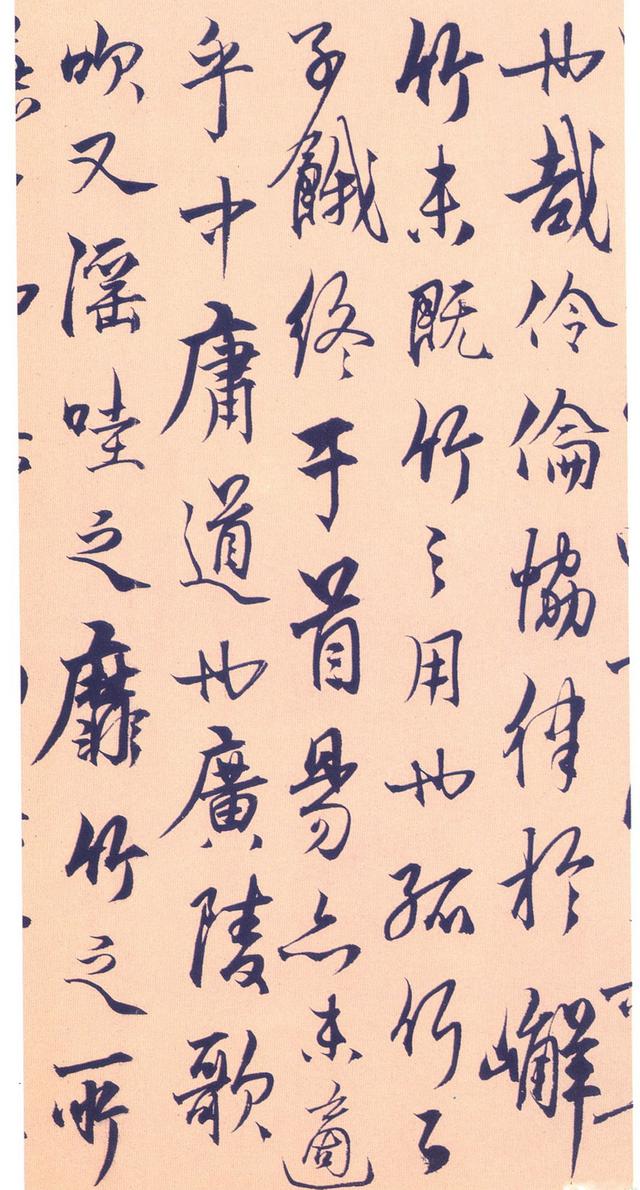 也哉伶倫恊律於嶰
竹未既竹之用也孤竹之
子餓終于首昜亦未適
乎中庸道也廣陵歌
吹又滛哇之靡竹之所